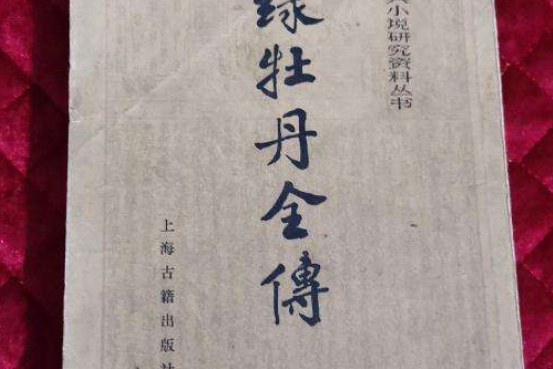 小说研究资料丛书
绿牡丹全傳
上海古籍出版社